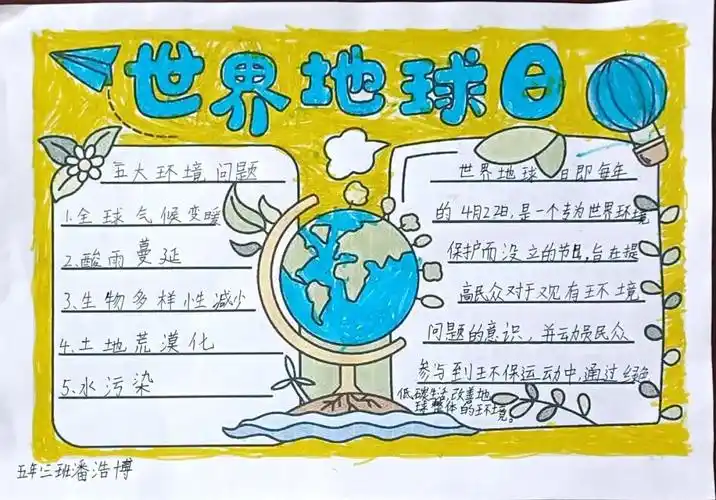 世界地球日
五大环境问题
1.全球气候变暖
2.酸雨蔓延
3.生物多样性减少
4.土地荒漠化
5.水污染
世界地球日即每年
的4月22日,是一个专为世界环境
保护而设立的节日,旨在提
高民众对于现有环境
问题的意识,并动员民众
参与到环保运动中,通过绿色
低碳生活,改善地
球整体的环境。
五年三班潘浩博